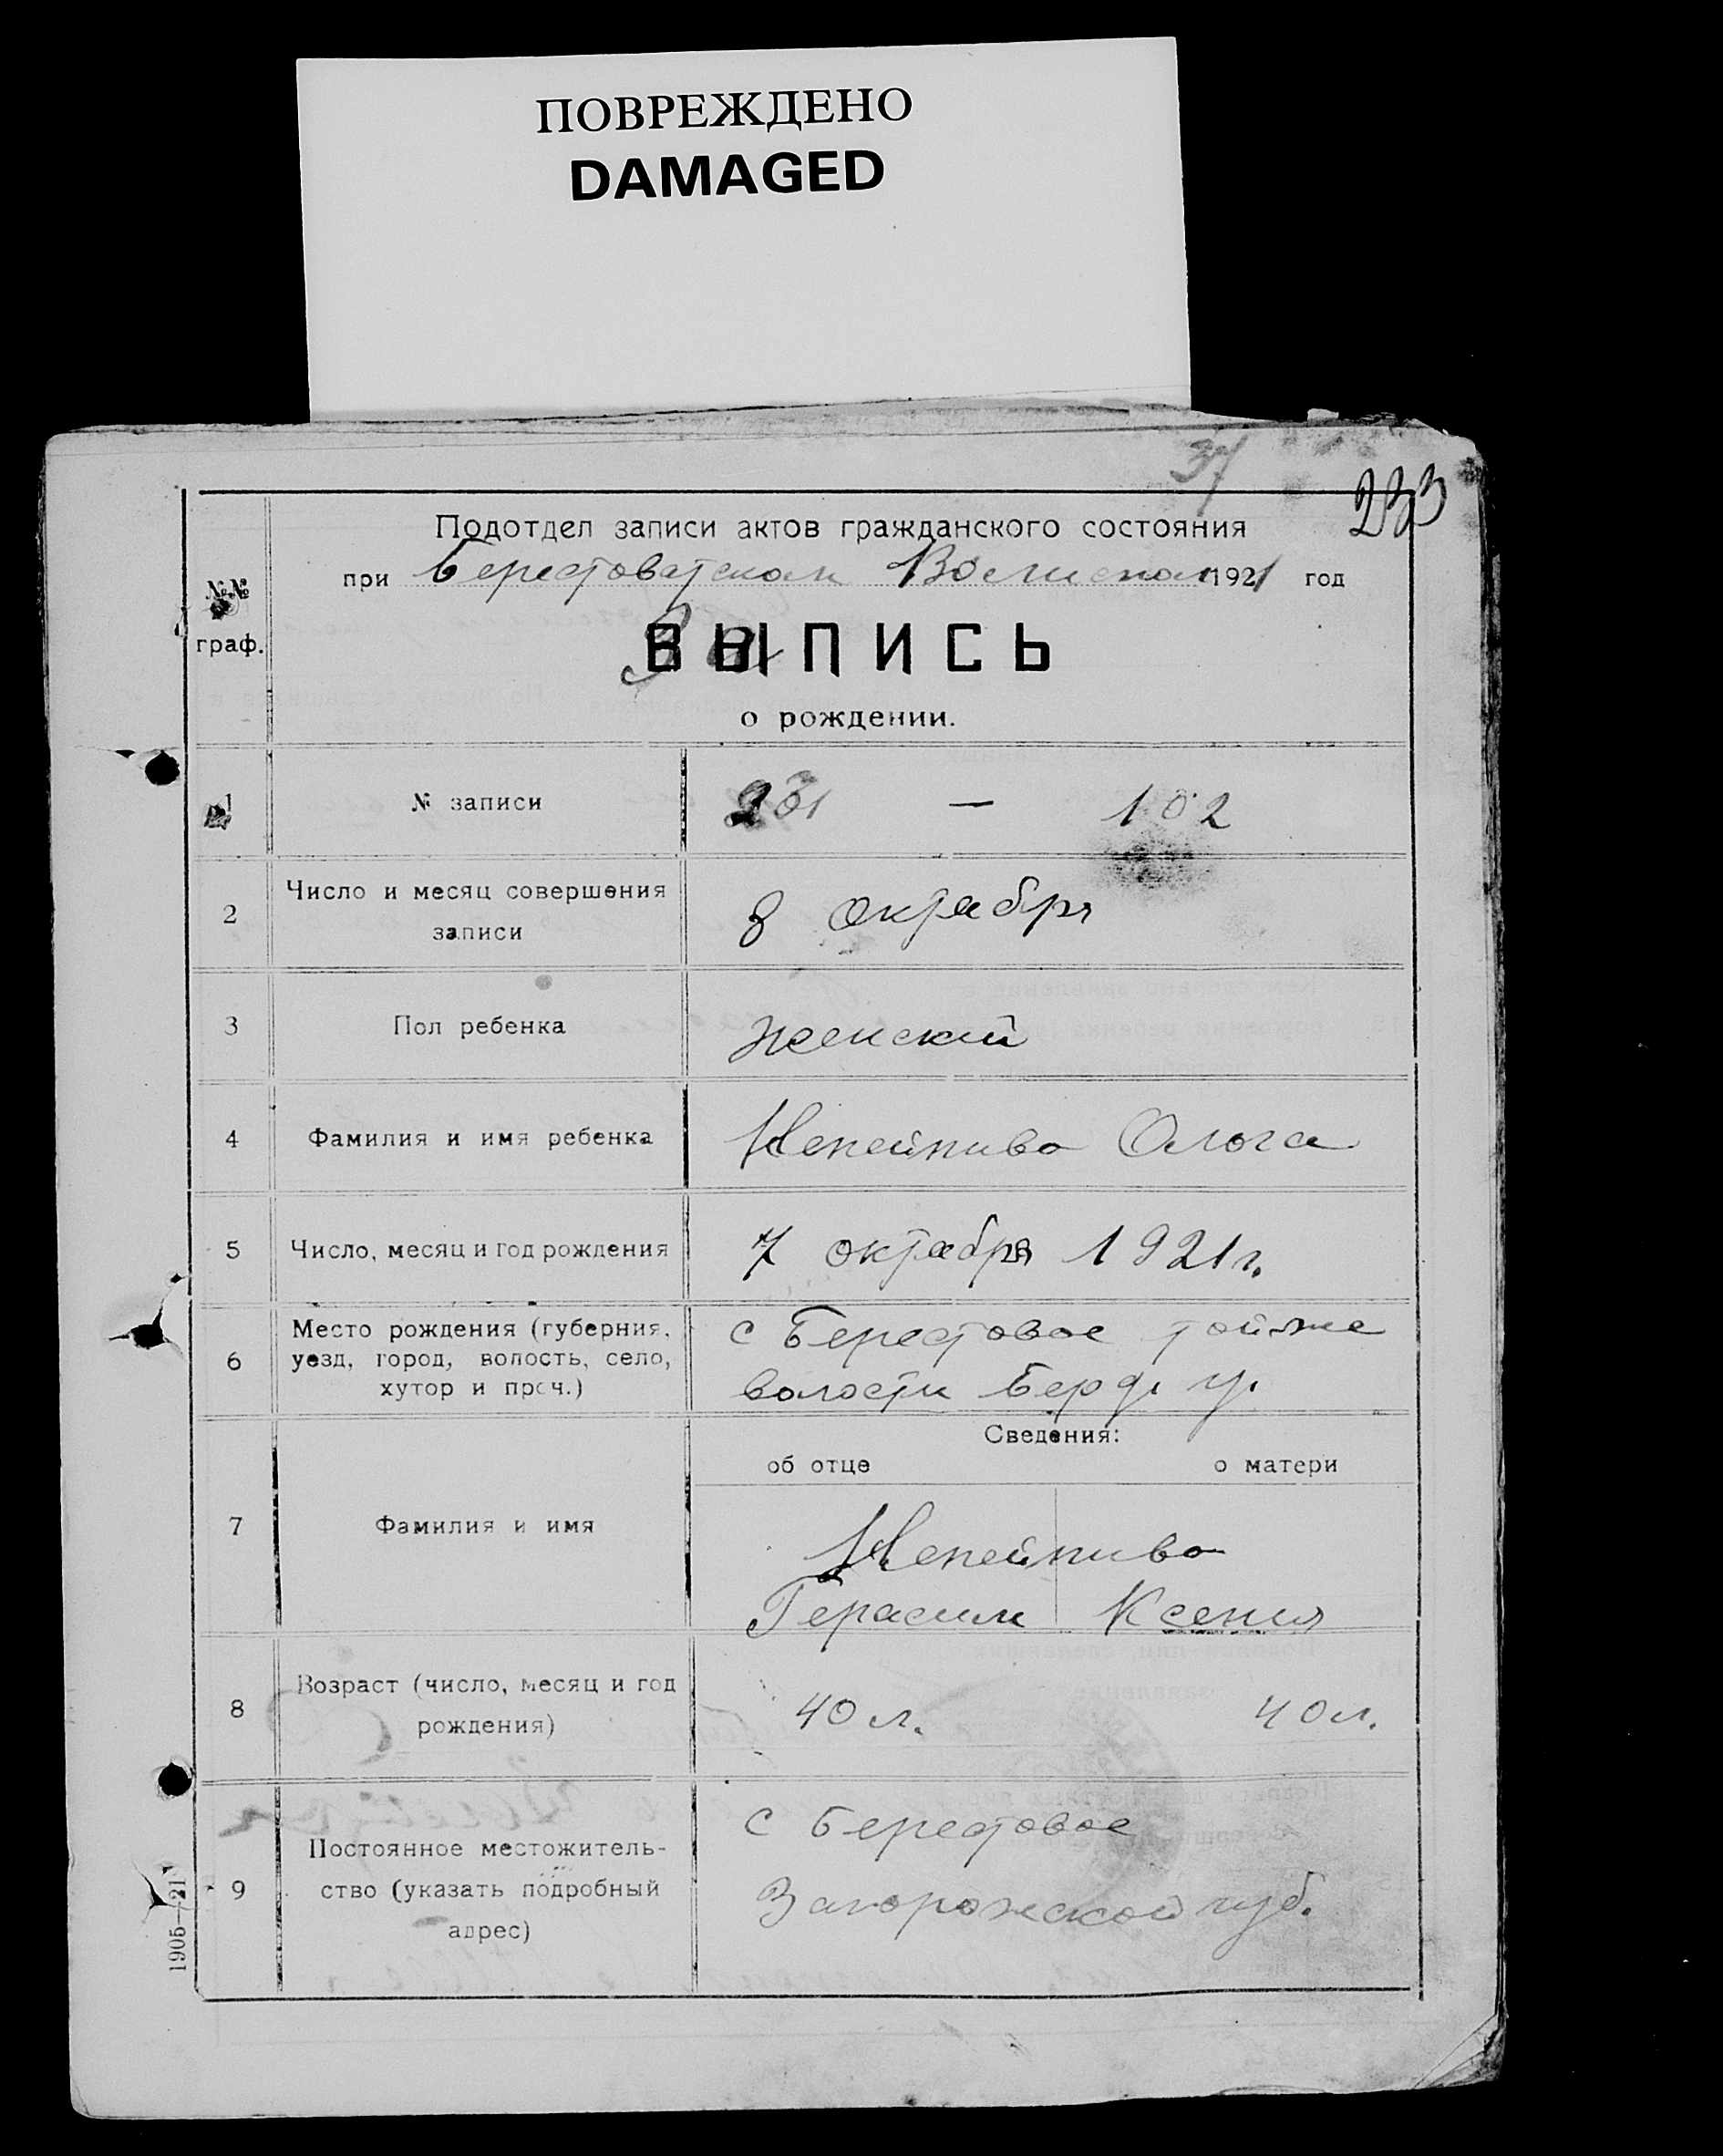 ПОВРЕЖДЕНО
DAMAGED
37
233
Подотдел записи актов гражданского состояния
при Берестоватском Волиском 1921 год
№№
граф.
ВЫПИСЬ
о рождении.
1 № записи 231 — 102
2 Число и месяц совершения
записи
8 октабря
3 Пол ребенка Женский
4 Фамилия и имя ребенка Непейпиво Ольга
5 Число, месяц и год рождения 7 октабря 1921 г.
6 Место рождения (губерния,
уезд, город, волость, село,
хутор и проч.)
с Берестовое тойже
волости Берд. у.
Сведения:
об отце о матери
7 Фамилия и имя
Непейпиво
Герасим Ксения
8 Возраст (число, месяц и год
рождения)
40 л. 40 л.
9 Постоянное местожитель-
ство (указать подробный
адрес)
с Берестовое
Запорожской губ.
1905—21